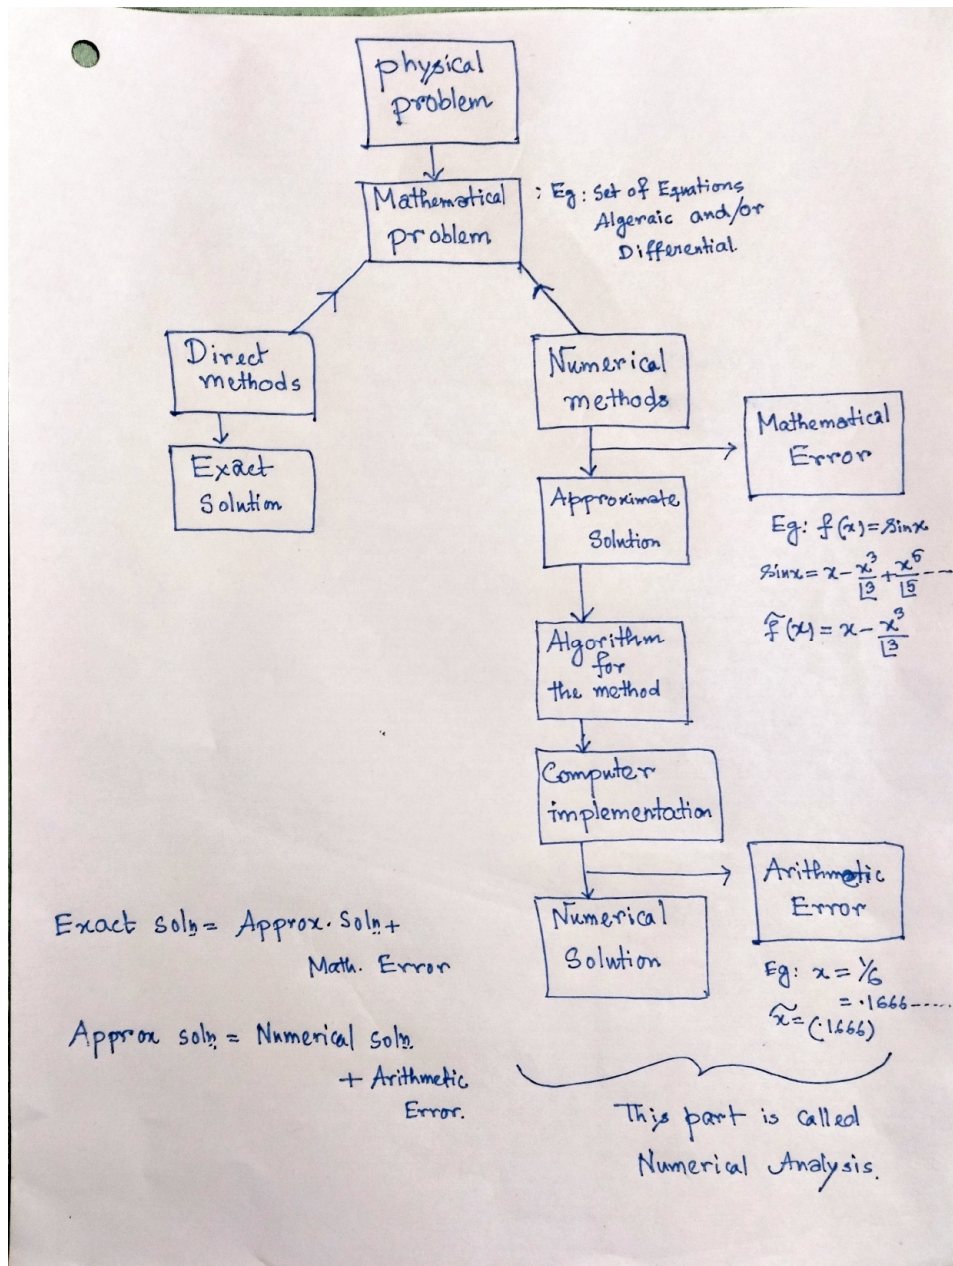 physical
problem
Mathematical
problem
: Eg: Set of Equations
Algeraic and/or
Differential.
Direct
methods
Exact
Solution
Numerical
methods
Mathematical
Error
Eg: f(x)=sinx
sinx = x - x³/⌊3 + x⁵/⌊5 ---
f̃(x) = x - x³/⌊3
Approximate
Solution
Algorithm
for
the method
Computer
implementation
Arithmetic
Error
Eg: x = 1/6
= .1666-----
x̃ = (.1666)
Numerical
Solution
Exact soln = Approx. Soln +
Math. Error
Approx soln = Numerical soln.
+ Arithmetic
Error.
This part is called
Numerical Analysis.